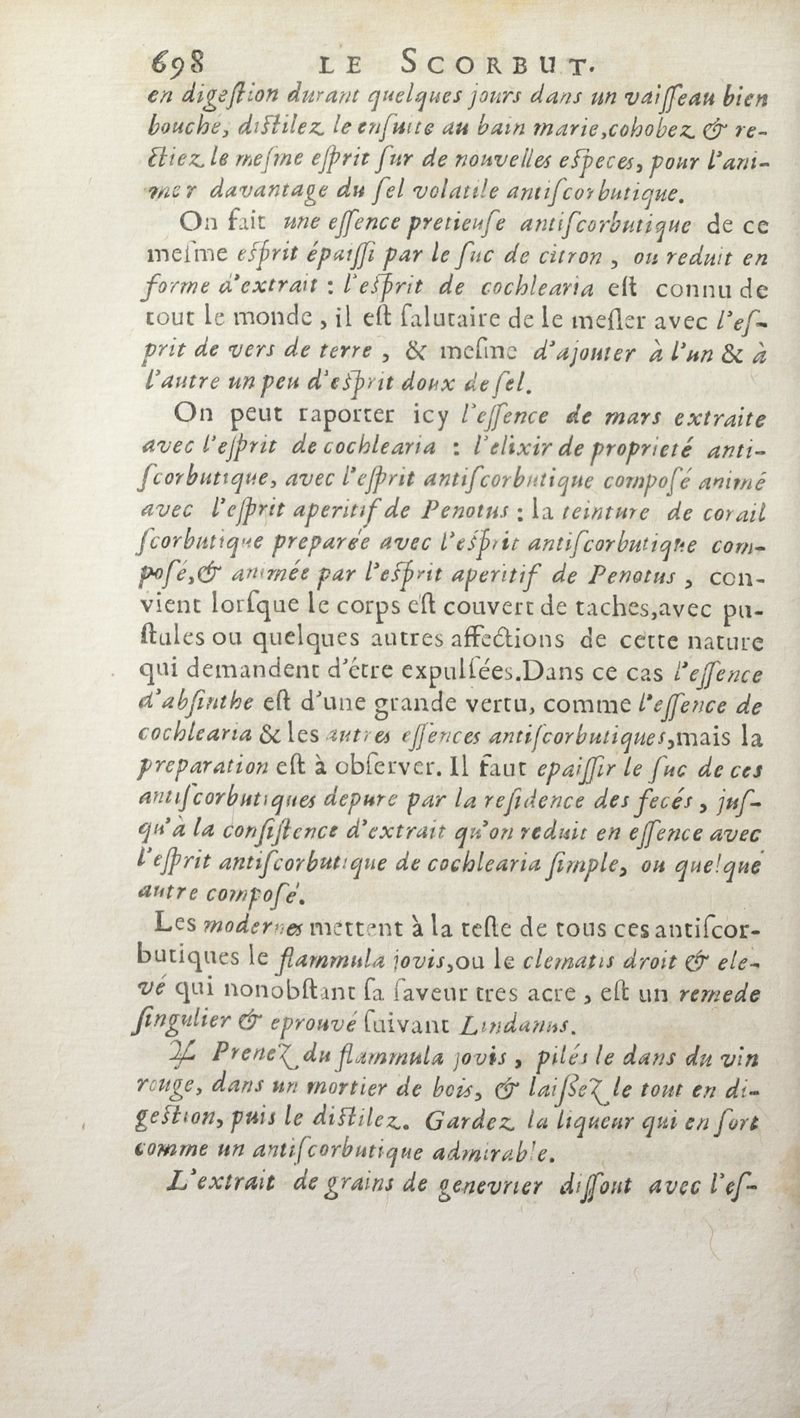 698 LE SCORBUT.
en digeſtion durant quelques jours dans un vaiſſeau bien
bouche, diſtilez le enſuite au bain marie,cohobez & re-
ſtiez le meſme eſprit ſur de nouvelles eſpeces, pour l'ani-
mer davantage du ſel volatile antiſcorbutique.
On fait une eſſence pretieuſe antiſcorbutique de ce
meſme eſprit épaiſſi par le ſuc de citron , ou reduit en
forme d'extrait : l'eſprit de cochlearia eſt connu de
tout le monde , il eſt ſalutaire de le meſler avec l'eſ-
prit de vers de terre , & meſme d'ajouter à l'un & à
l'autre un peu d'eſprit doux de ſel.
On peut raporter icy l'eſſence de mars extraite
avec l'eſprit de cochlearia : l'elixir de proprieté anti-
ſcorbutique, avec l'eſprit antiſcorbutique compoſé animé
avec l'eſprit aperitif de Penotus : la teinture de corail
ſcorbutique preparée avec l'eſprit antiſcorbutique com-
poſé,& animée par l'eſprit aperitif de Penotus , con-
vient lorſque le corps eſt couvert de taches,avec pu-
ſtules ou quelques autres affections de cette nature
qui demandent d'étre expulſées.Dans ce cas l'eſſence
d'abſinthe eſt d'une grande vertu, comme l'eſſence de
cochlearia & les autres eſſences antiſcorbutiques,mais la
preparation eſt à obſerver. Il faut epaiſſir le ſuc de ces
antiſcorbutiques depure par la reſidence des fecés , juſ-
qu'à la conſiſtence d'extrait qu'on reduit en eſſence avec
l'eſprit antiſcorbutique de cochlearia ſimple, ou quelque
autre compoſé.
Les modernes mettent à la teſte de tous ces antiſcor-
butiques le flammula jovis,ou le clematis droit & ele-
vé qui nonobſtant ſa ſaveur tres acre , eſt un remede
ſingulier & eprouvé ſuivant Lindanus.
♃ Prenez du flammula jovis , pilés le dans du vin
rouge, dans un mortier de bois, & laiſsez le tout en di-
geſtion, puis le diſtilez. Gardez la liqueur qui en ſort
comme un antiſcorbutique admirable.
L'extrait de grains de genevrier diſſout avec l'eſ-